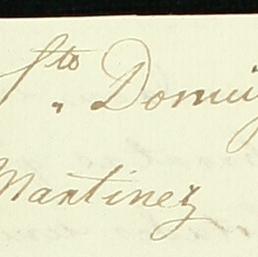 Sto Domin
Martinez